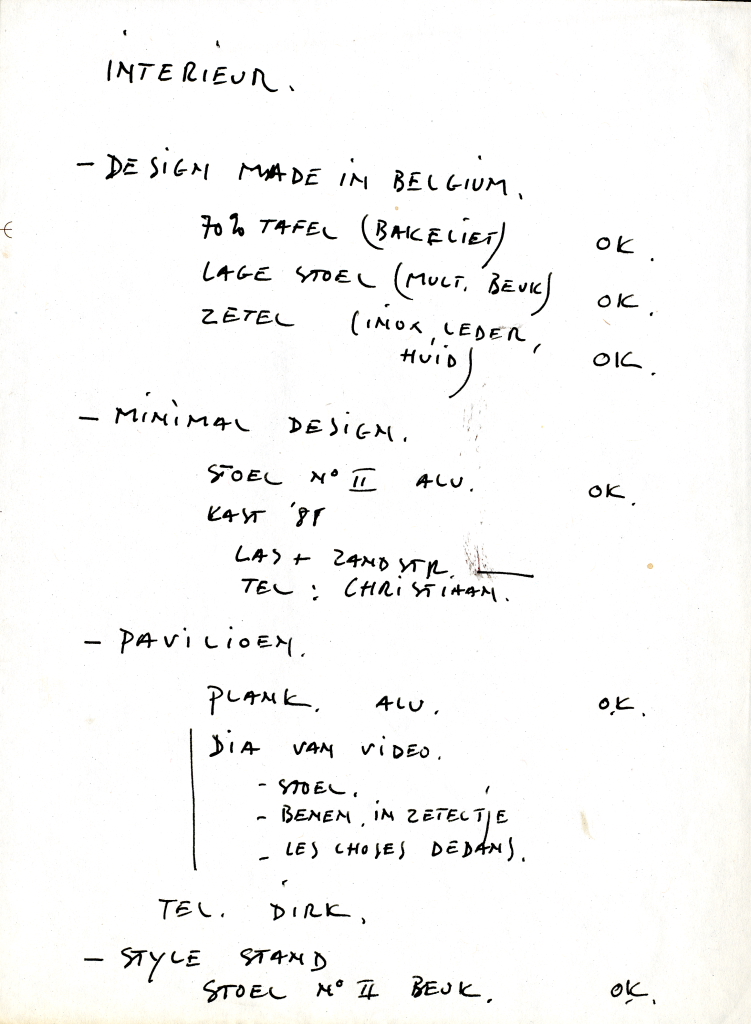 INTERIEUR.
- DESIGN MADE IN BELGIUM.
70% TAFEL (BAKELIET) OK.
LAGE STOEL (MULT. BEUK) OK.
ZETEL (INOX, LEDER,
HUID) OK.
- MINIMAL DESIGN.
STOEL N° II ALU. OK.
KAST '88
LAS + ZANDSTR. —
TEL : CHRISTIAAN.
- PAVILIOEN.
PLANK. ALU. O.K.
DIA VAN VIDEO.
- STOEL.
- BENEN, IN ZETELTJE
- LES CHOSES DEDANS.
TEL. DIRK.
- STYLE STAND
STOEL N° II BEUK. OK.